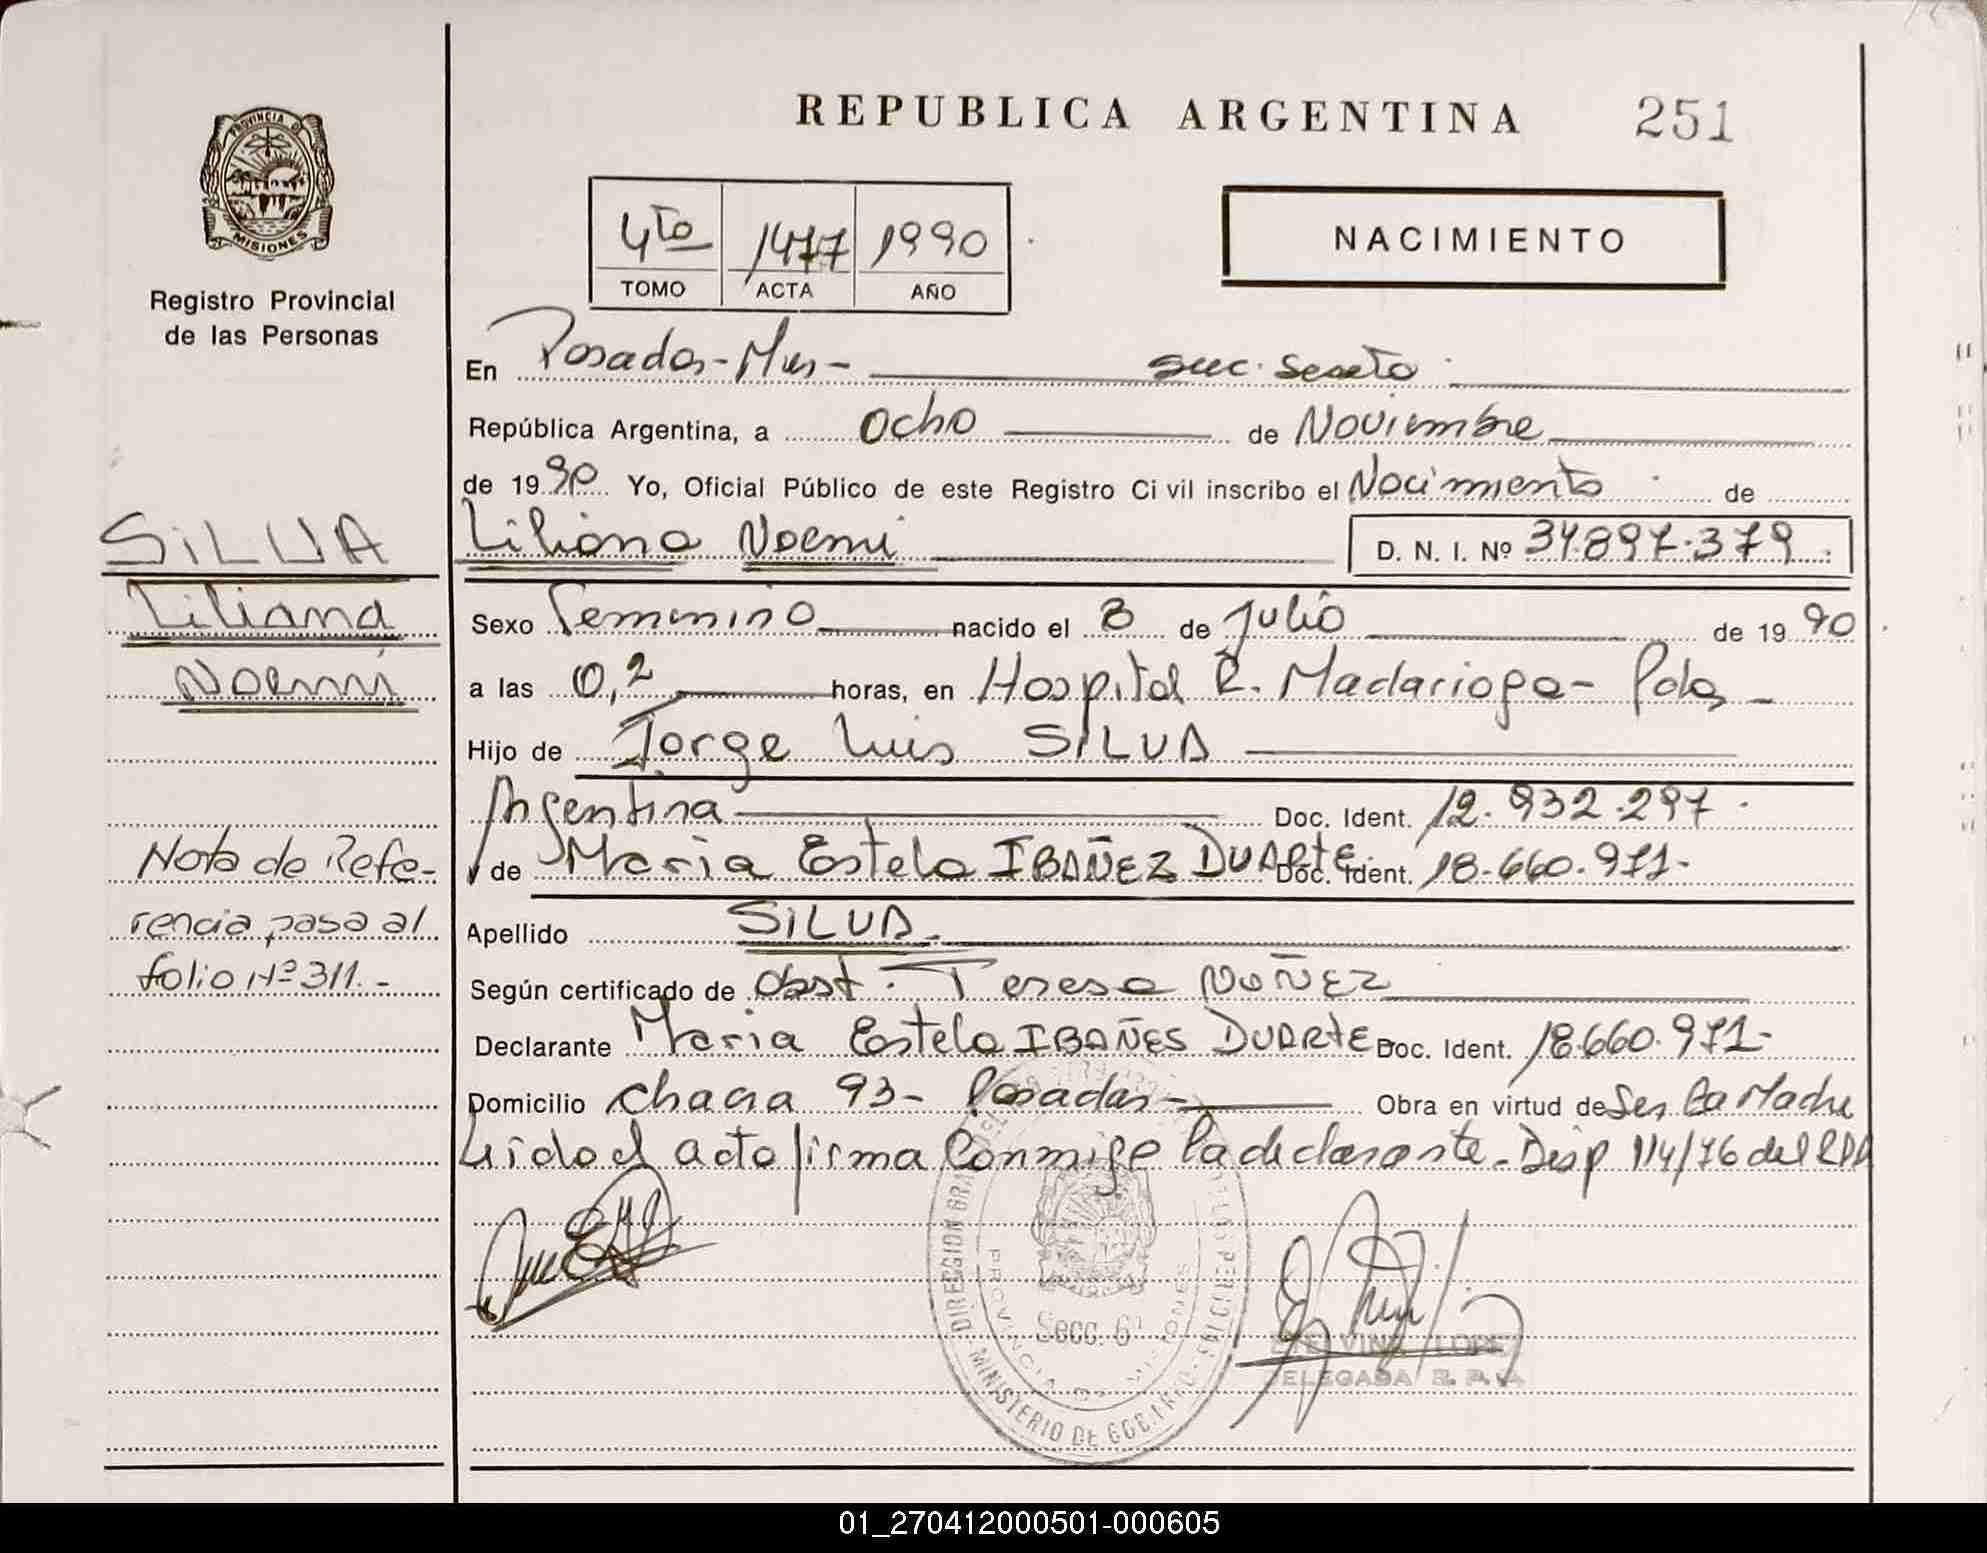 REPUBLICA ARGENTINA 251
PROVINCIA DE
MISIONES
Registro Provincial
de las Personas
4to 1477 1990
TOMO ACTA AÑO
NACIMIENTO
En Posadas - Mnes - secc. sexta
República Argentina, a Ocho de Noviembre
de 1990 Yo, Oficial Público de este Registro Civil inscribo el Nacimiento de
Liliana Noemi D. N. I. Nº 34.897.379
Sexo Femenino nacido el 8 de Julio de 1990
a las 0,2 horas, en Hospital R. Madariaga - Pdas -
Hijo de Jorge Luis SILVA
Argentina Doc. Ident. 12.932.297
y de Maria Estela IBAÑEZ DUARTE Doc. Ident. 18.660.971-
Apellido SILVA
Según certificado de Obst. Teresa NUÑEZ
Declarante Maria Estela IBAÑES DUARTE Doc. Ident. 18.660.971-
Domicilio Chacra 93 - Posadas - Obra en virtud de Ser la Madre
Leido el acto firma Conmigo la declarante - Disp 114/76 del RPP
SILVA
Liliana
Noemi
Nota de Refe-
rencia pasa al
folio Nº 311.-
DIRECCION GRAL
PROVINCIA DE MISIONES
Secc. 6ª
MINISTERIO DE GOBIERNO
LOPEZ
DELEGADA R. P. P.
01_270412000501-000605